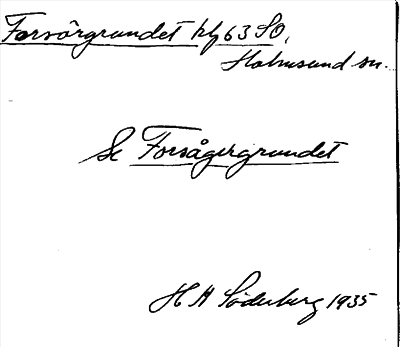 Forsörgrundet kbl 63 SO,
Holmsund sn.
Se Forsågergrundet
H H Söderberg 1935